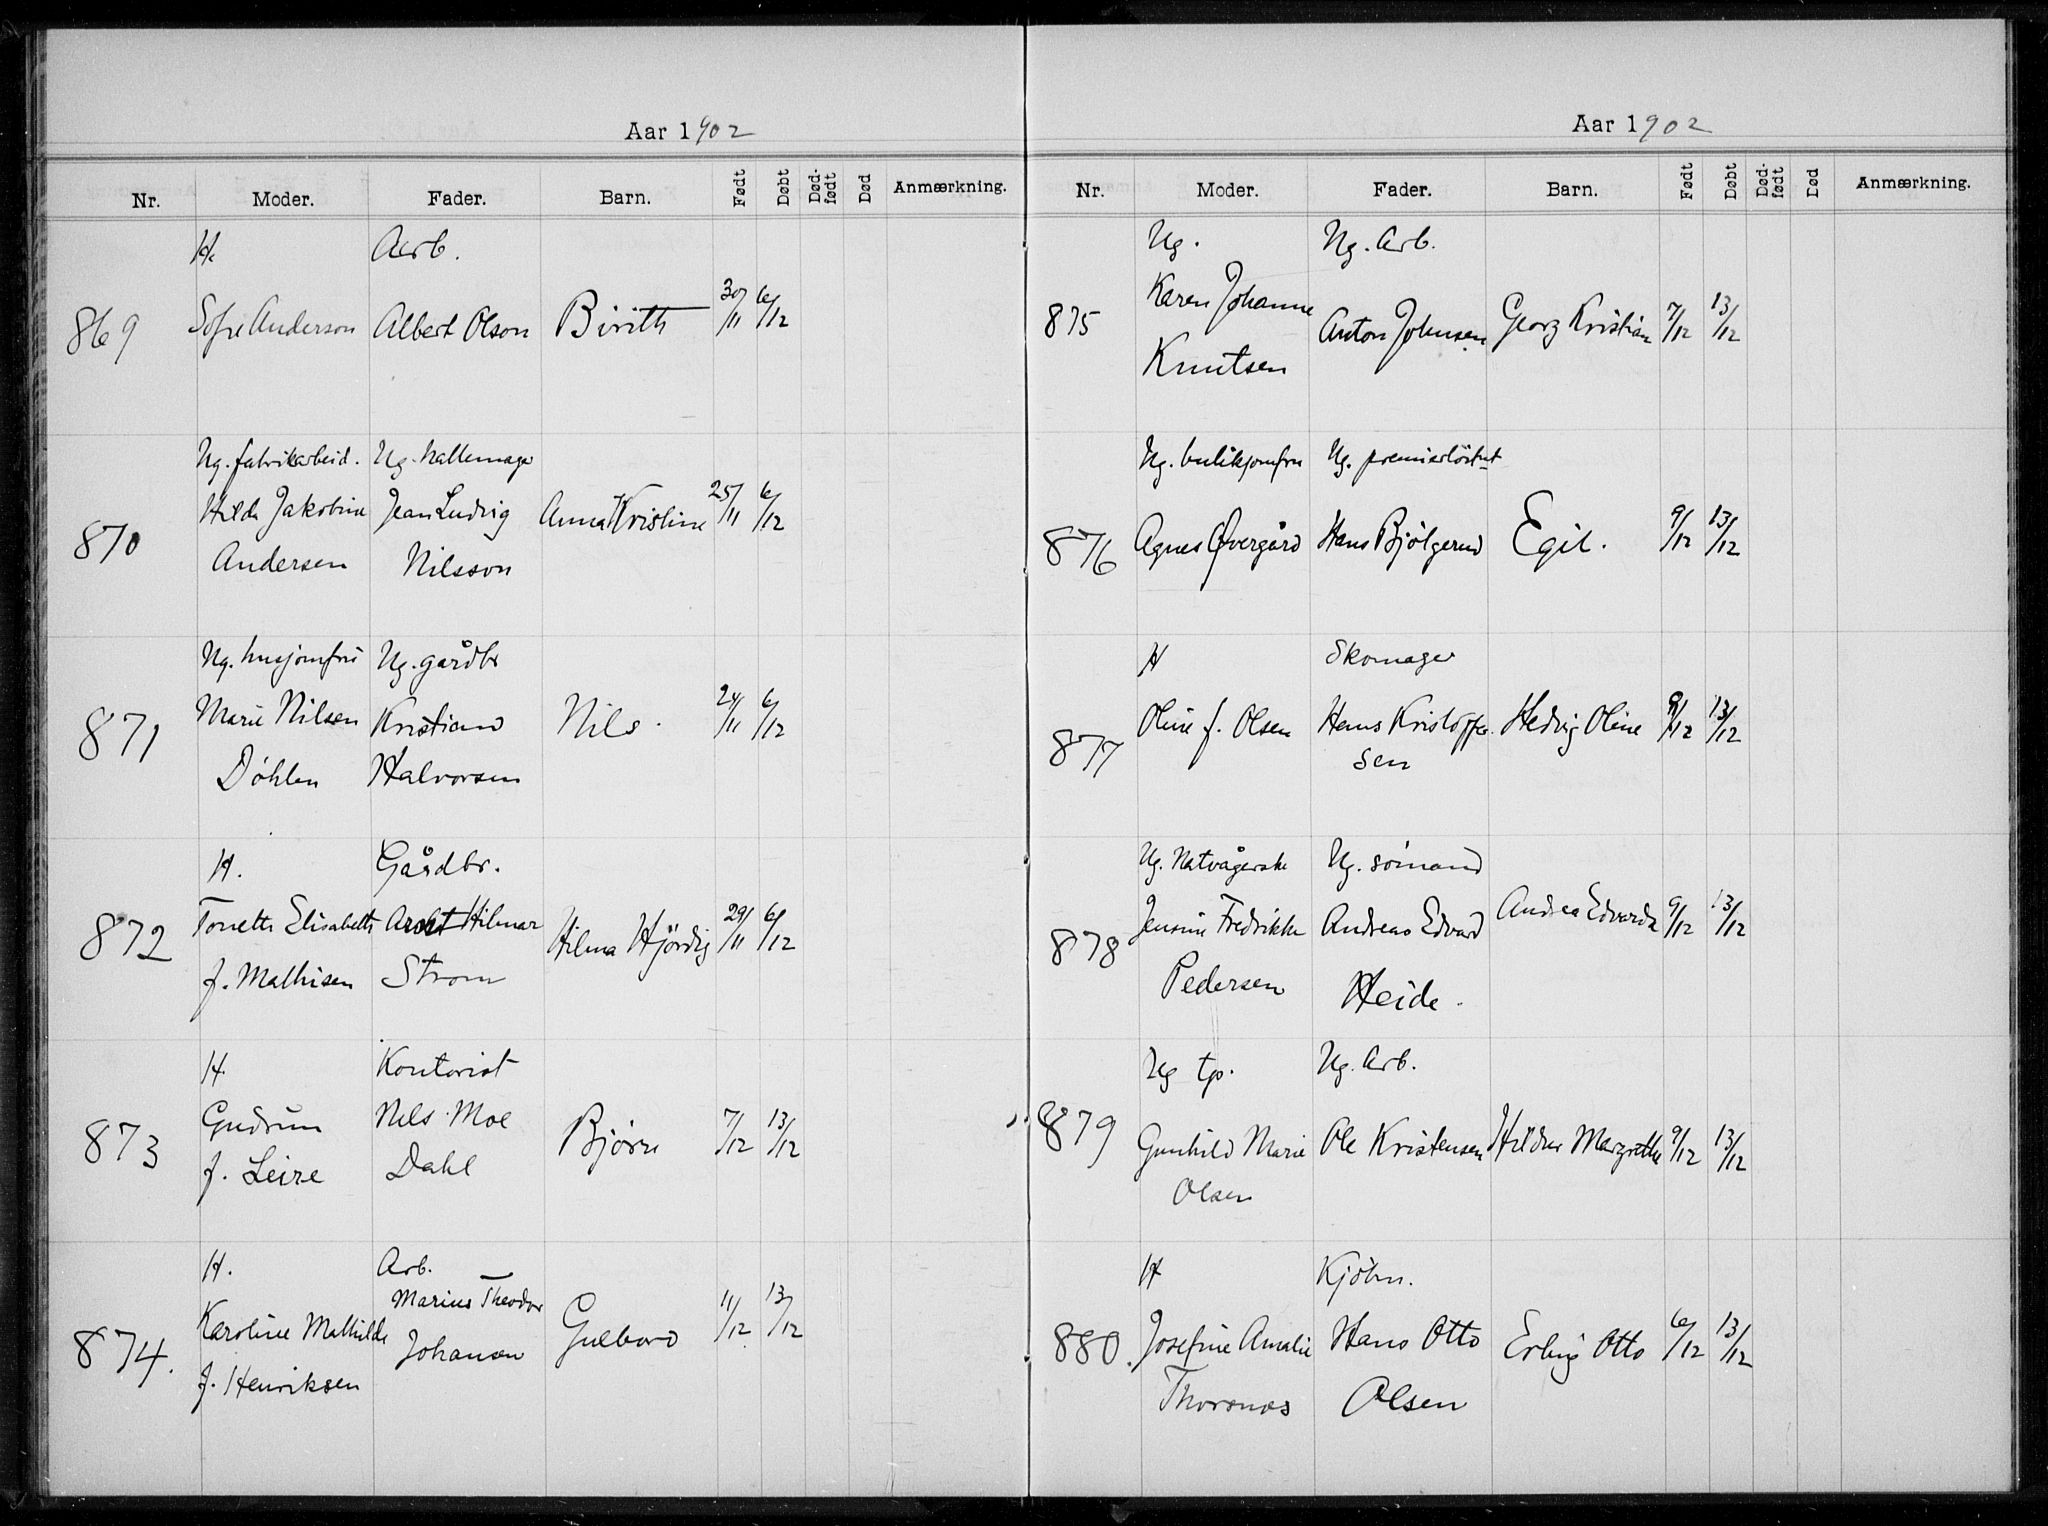 Aar 1902
Nr. Moder. Fader. Barn. Født Døbt Død-født Død Anmærkning.
H. Arb.
869 Sofie Anderson Albert Olson Birith 30/11 6/12
Ug. fabrikarbeid. Ug.
870 Hilda Jakobine Jean Ludvig Anna Kristine 25/11 6/12
Andersen Nilsson
Ug. husjomfru Ug. gårdbr
871 Marie Nilsen Kristian Nils. 24/11 6/12
Døhlen Halvorsen
H. Gårdbr.
872 Tonette Elisabeth Hilmar Hilma Hjördis 29/11 6/12
f. Mathisen Strom
H. Kontorist
873 Gudrun Nils Moe Bjørn 7/12 13/12
f. Leire Dahl
H. Arb.
874. Karoline Mathilde Marius Theodor Gulbord 11/12 13/12
f. Henriksen Johansen
Aar 1902
Nr. Moder. Fader. Barn. Født Døbt Død-født Død Anmærkning.
Ug. Ug. Arb.
875 Karen Johanne Anton Johnsen Georg Kristian 7/12 13/12
Knutsen
Ug. butikjomfru Ug. premierlöitnt
876 Agnes Øvergård Hans Bjölgerud Egil. 9/12 13/12
H Skomager
877 Oline f. Olsen Hans Kristoffer Hedvig Oline 9/12 13/12
sen
Ug. Natvågerske Ug. sömand
878 Jensine Fredrikke Andreas Edvard Andrea Edvarda 9/12 13/12
Pedersen Heide.
Ug tp. Ug. Arb.
879 Gunhild Marie Ole Kristensen Hildur Margrethe 9/12 13/12
Olsen
H Kjöbm.
880. Josefine Amalie Hans Otto Erling Otto 6/12 13/12
Thorsnæs Olsen